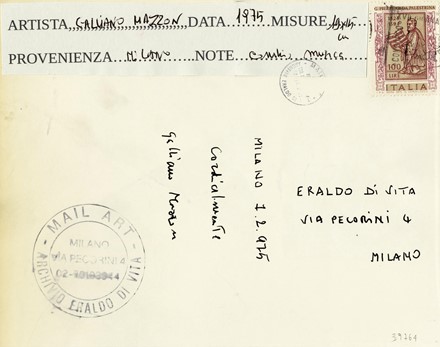 ARTISTA GALLIANO MAZZON DATA 1975 MISURE
PROVENIENZA Milano NOTE
G. PIERLUIGI DA PALESTRINA
100
LIRE
ITALIA
MILANO 1.2.975
Cordialmente
Galliano Mazzon
ERALDO DI VITA
VIA PECORINI 4
MILANO
MAIL ART
MILANO
VIA PECORINI 4
ARCHIVIO ERALDO DI VITA